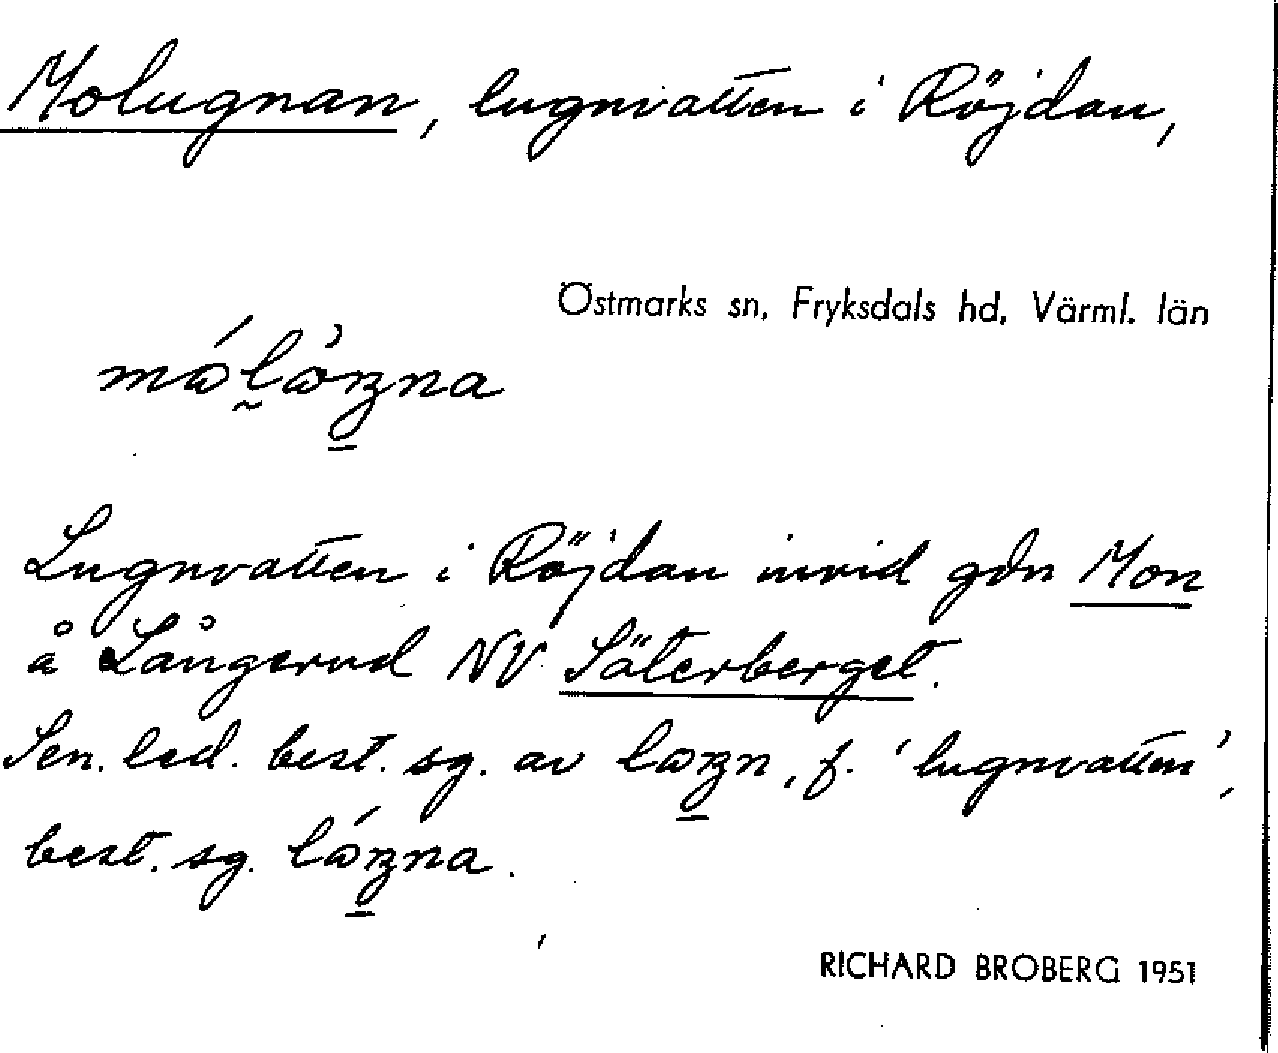 Molugnan, lugnvatten i Röjdan,
Östmarks sn, Fryksdals hd, Värml. län
Lugnvatten i Röjdan invid gdn Mon
å Långerud NV Säterberget.
Sen. led. best. sg. av lωŋn, f. 'lugnvatten',
best. sg. lώŋna.
RICHARD BROBERG 1951